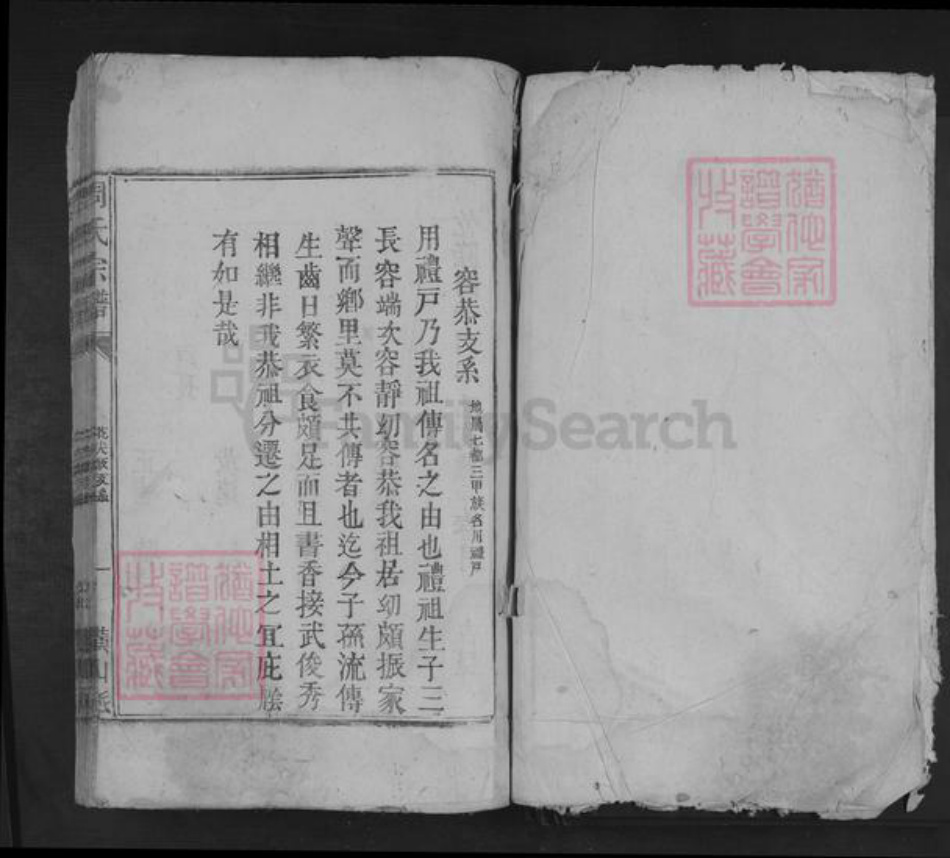 容恭支系 地属七都三甲族名用禮戸
用禮戸乃我祖傳名之由也禮祖生子三
長容端次容靜幼容恭我祖居幼頗振家
聲而鄉里莫不共傳者也迄今子孫流傳
生齒日繁衣食頗足而且書香接武俊秀
相繼非我恭祖分遷之由相土之宜庇廕
有如是哉
周氏宗譜
支系
一
猶他家
譜學會
收藏
猶他家
譜學會
收藏
FamilySearch